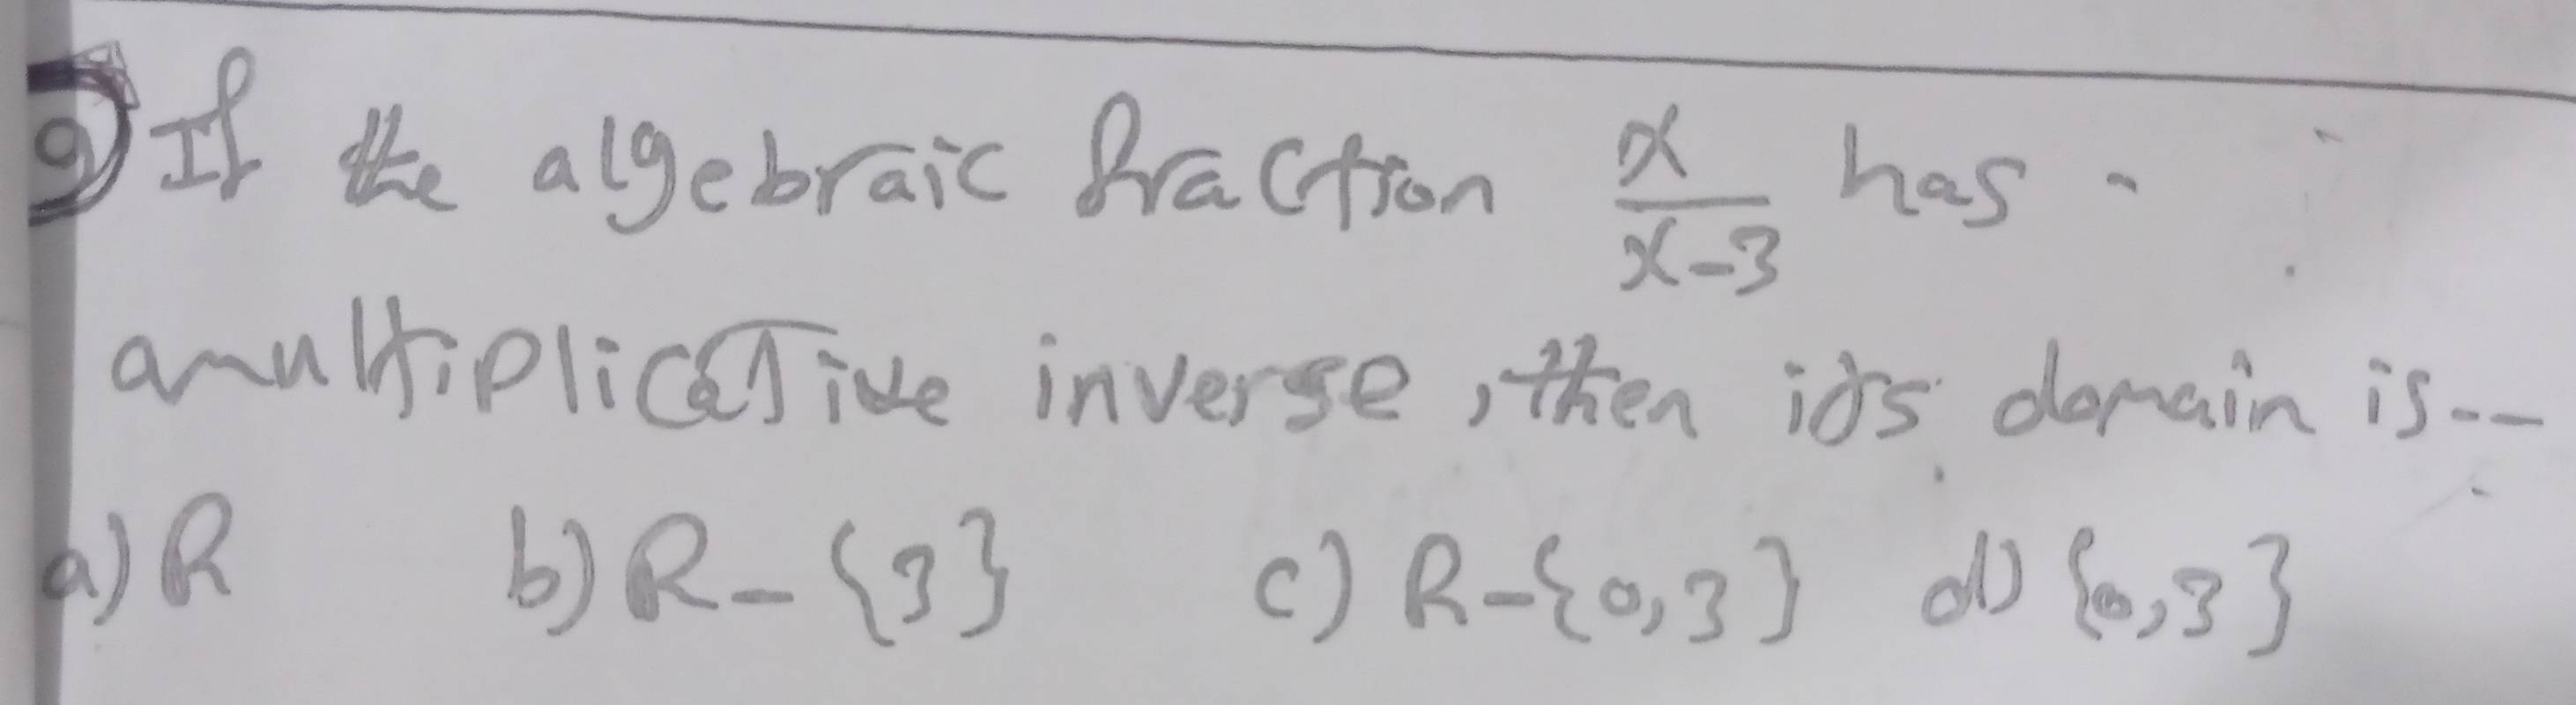 9) If the algebraic fraction x/x-3 has
amultiplicative inverse, then its domain is--
a) R b) R-{3} c) R-{0,3} d) {0,3}